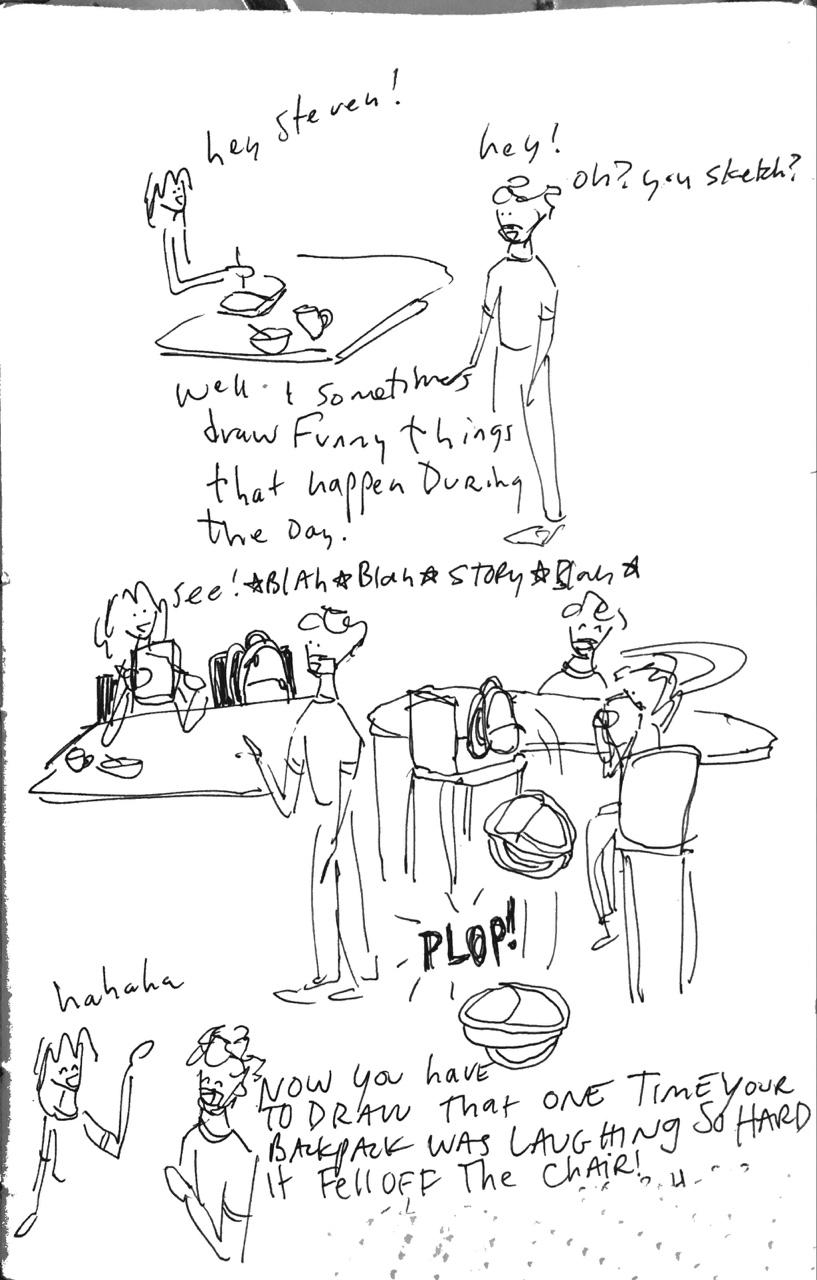 hey steven!
hey!
oh? you sketch?
Well. I sometimes
draw Funny things
that happen DURing
the Day.
see! ☆BlAh☆Blah☆ STORY☆Blah☆
PLOP!
hahaha
NOW you have
TO DRAW that ONE TIME YOUR
BACKPACK WAS LAUGHING So HARD
It Fell OFF The CHAIR!